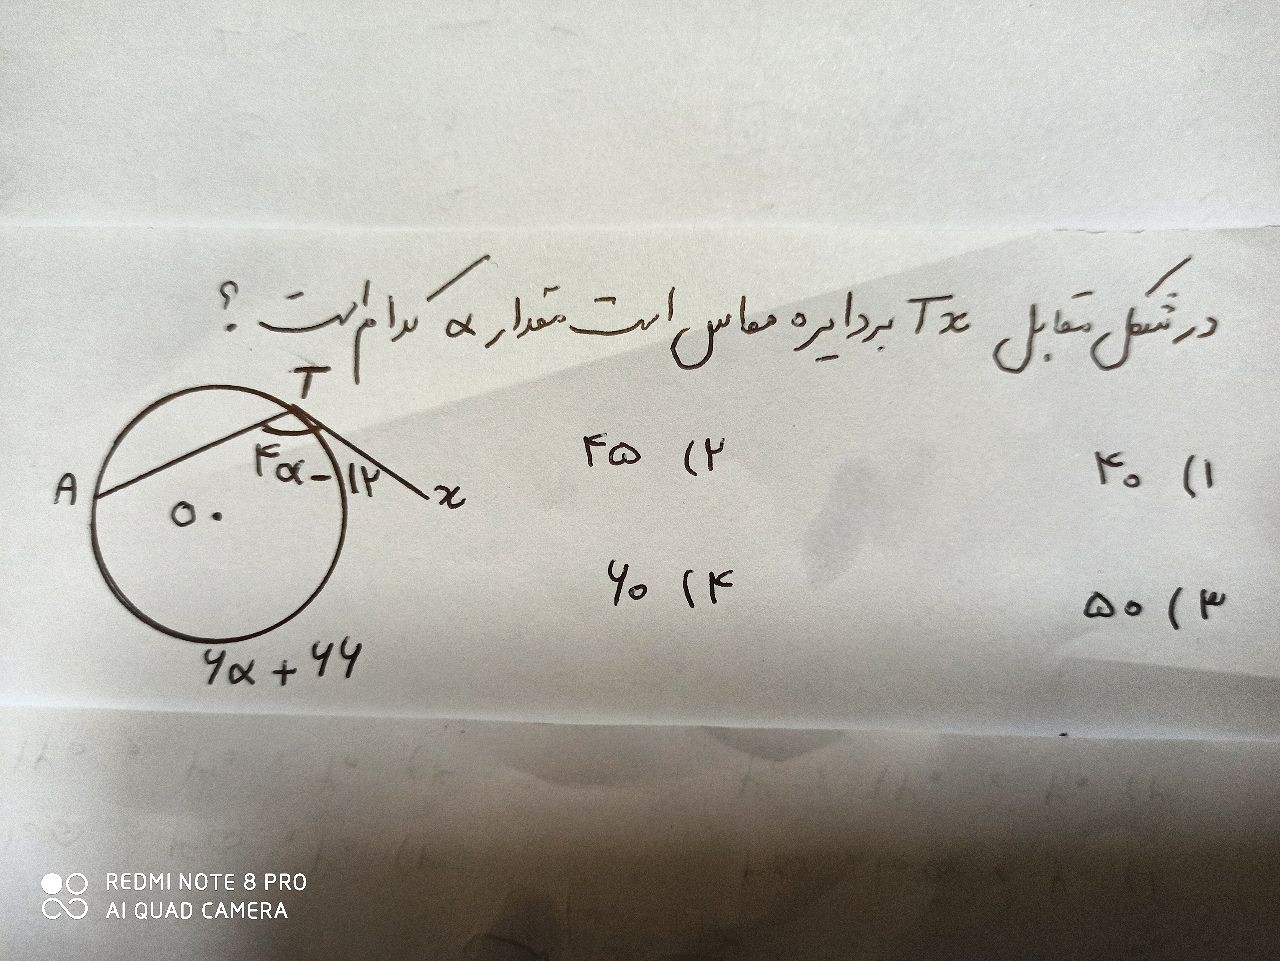 در شکل مقابل Tx بر دایره مماس است مقدار α کدام است ؟
T
A
۴α - ۱۲
x
O
۶α + ۶۶
۱) ۴۰
۲) ۴۵
۳) ۵۰
۴) ۶۰
REDMI NOTE 8 PRO
AI QUAD CAMERA